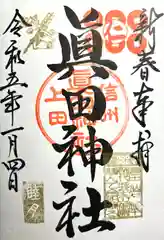 新春奉拝
眞田神社
信州
上田
令和五年一月四日